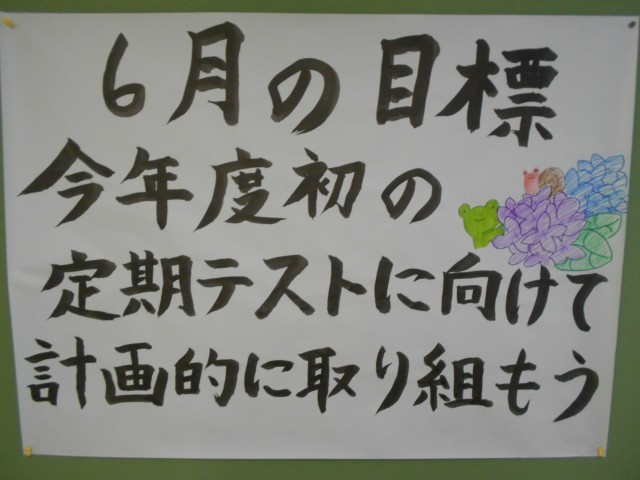 6月の目標
今年度初の
定期テストに向けて
計画的に取り組もう